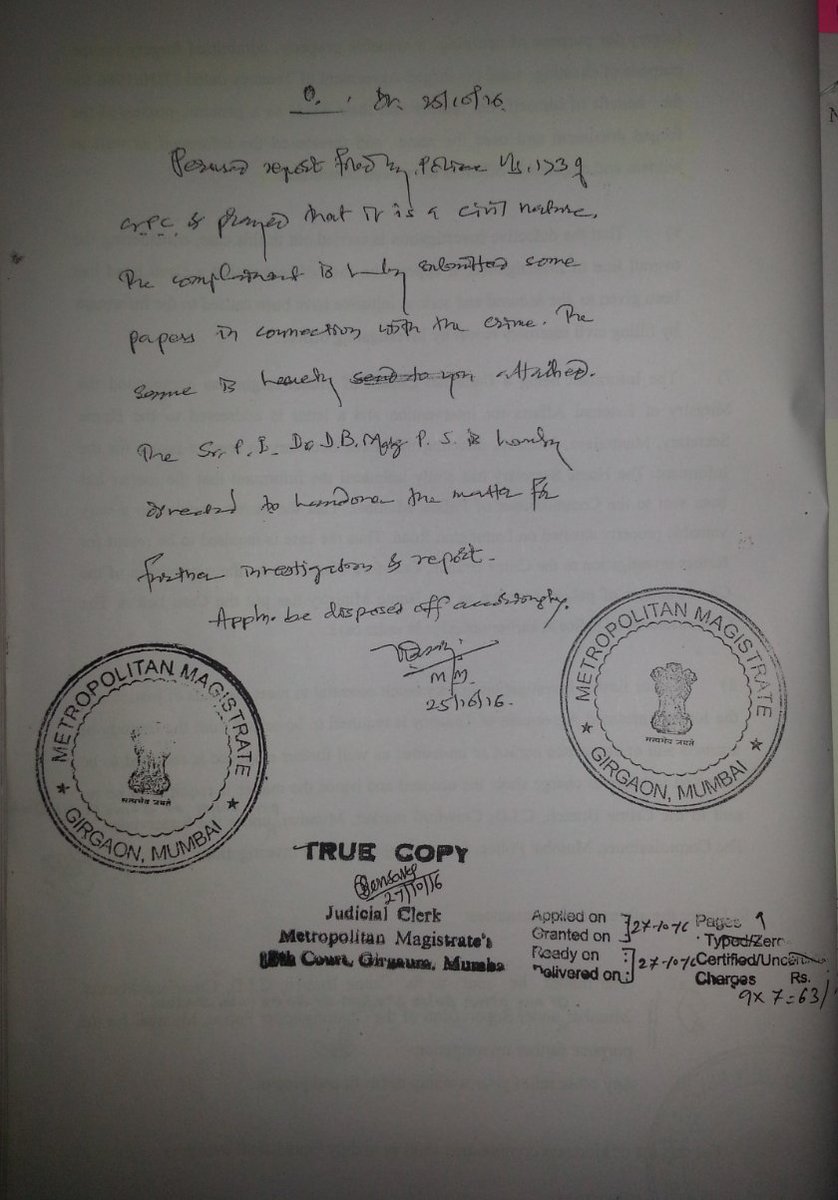 O. Dt. 25/10/16
Perused report filed by Police U/s. 173 of
Cr.P.C. & prayed that it is a civil nature.
The complainant is hereby submitted some
papers in connection with the crime. The
same is hereby attached.
The Sr. P. I. Dr. D.B. Marg P. S. is hereby
directed to handover the matter for
further investigation & report.
Appln. be disposed off accordingly.
M.M.
25/10/16.
METROPOLITAN MAGISTRATE
GIRGAON, MUMBAI
सत्यमेव जयते
METROPOLITAN MAGISTRATE
GIRGAON, MUMBAI
सत्यमेव जयते
TRUE COPY
27/10/16
Judicial Clerk
Metropolitan Magistrate's
18th Court, Girgaum, Mumbai
Applied on
Granted on ] 27-10-16
Ready on
Delivered on ] 27-10-16
Pages 9
Typed/Zerox
Certified/Uncertified
Charges Rs.
9x7=63/